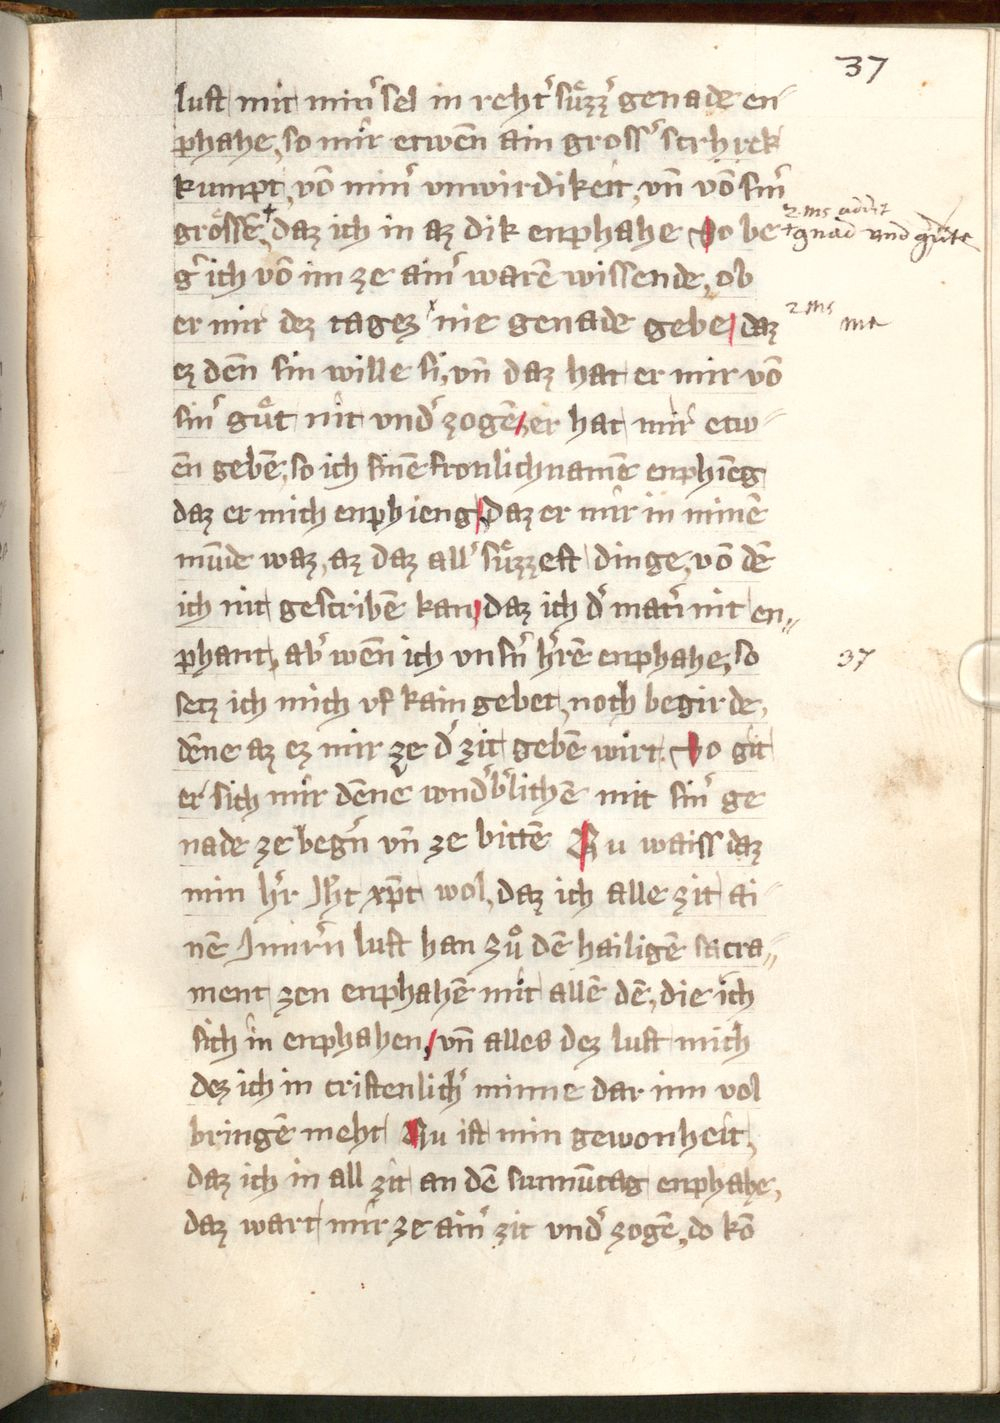 37
lust mit min̾ sel in reht̾ sůzz̾ genade en⸗
phahe, so mir etwēn ain gross̾ schrek
kumpt, vō min̾ vnwirdikeit, vn̄ vō sin̾
grössē,⁺ daz ich in az dik enphahe Do be
2 ms addit
+ gnad vnd güte
g̾ ich vō im ze ain̾ warē wissende, ob
er mir dez tagez ˣ nie genade gebe / daz
2 ms me
ez dēn sin wille si, vn̄ daz hat er mir vō
sin̾ gůt nit vnd̾ zogē / er hat mir etw⸗
en gebē, so ich sinē fronlichnamē enphieng
daz er mich enphieng / Daz er mir in minē
mūde waz, az daz all̾ sůzzest dinge, vō dē
ich nit gescribē kan / daz ich d̾ mat̾i nit en⸗
phant, ab̾ wēn ich vnsn̾ h̾rē enphahe, so
37
setz ich mich vf kain gebet, noch begirde,
dēne az ez mir ze d̾ zit gebē wirt. Do git
er sich mir dēne wnd̾b̾lichē mit sin̾ ge
nade ze begn̾ vn̄ ze bittē Nu waiss daz
min h̾r Jh̄c xp̄c wol, daz ich alle zit ai⸗
nē Jnnr̾n lust han zů dē hailigē sacra⸗
ment zen enphahē mit allē dē, die ich
sich in enphahen / vn̄ alles dez lust mich
dez ich in cristenlich̾ minne dar inn vol
bringē meht Nu ist min gewonheit,
daz ich in all zit an dē sunnūtag enphahe,
daz wart mir ze ain̾ zit vnd̾ zogē, do kō